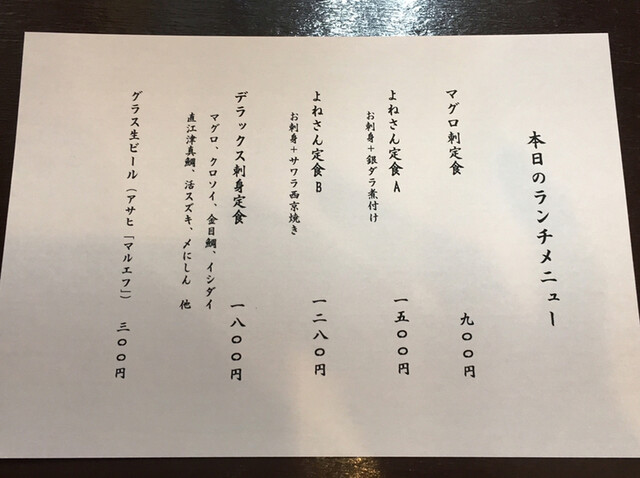 本日のランチメニュー
マグロ刺定食 九〇〇円
よねさん定食A 一五〇〇円
お刺身+銀ダラ煮付け
よねさん定食B 一二八〇円
お刺身+サワラ西京焼き
デラックス刺身定食 一八〇〇円
マグロ、クロソイ、金目鯛、イシダイ
直江津真鯛、活スズキ、〆にしん 他
グラス生ビール(アサヒ「マルエフ」) 三〇〇円